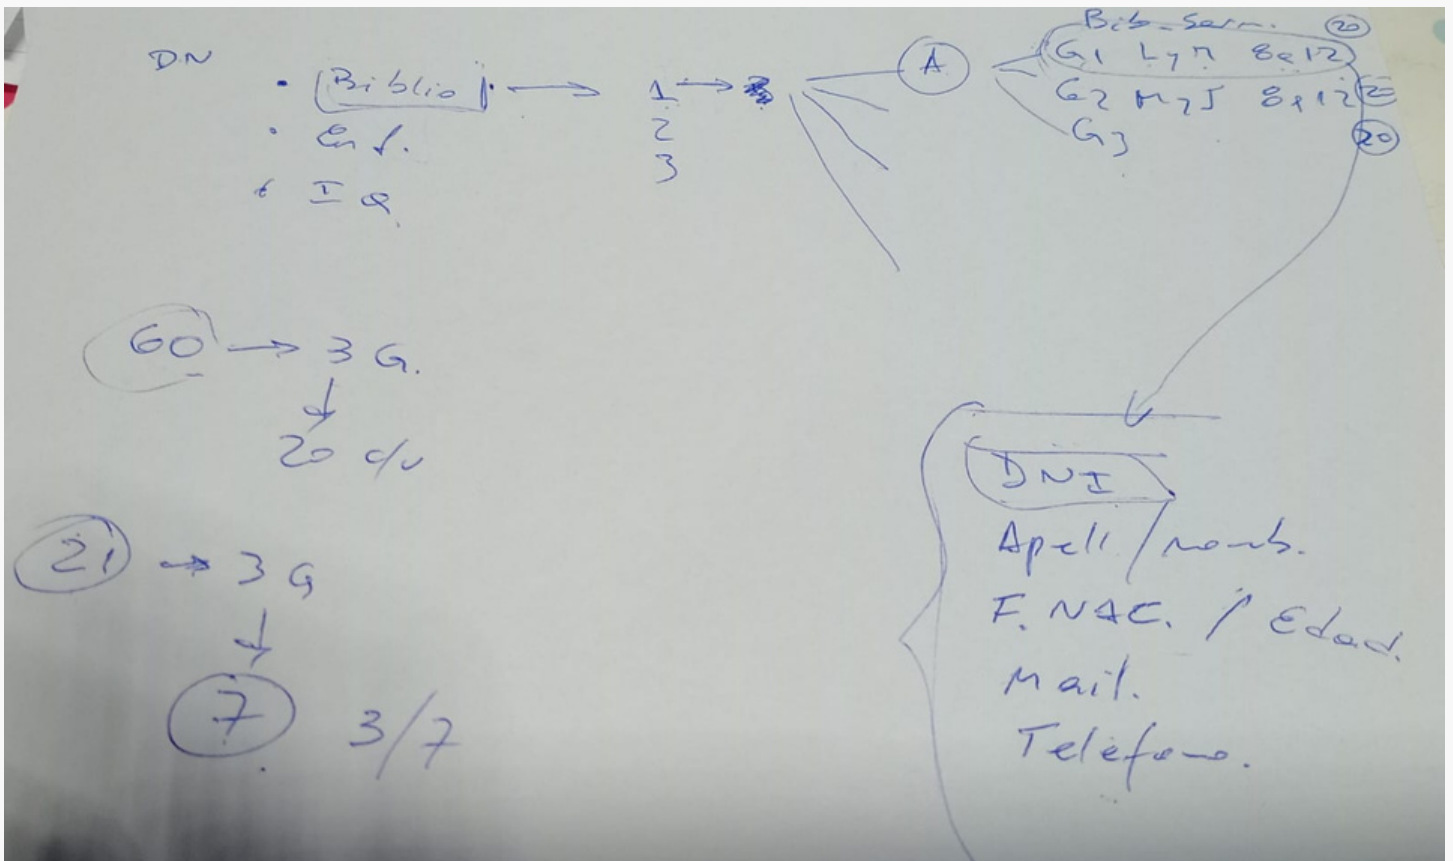 DN
• Biblio → 1 →
• Enf. 2
• I Q 3
A
Bib. Sarm. 20
G1 L y M 8 a 12
G2 M y J 8 a 12 20
G3 20
60 → 3 G.
20 c/u
21 → 3 G
7 3/7
DNI
Apell / nomb.
F. NAC. / Edad.
Mail.
Teléfono.